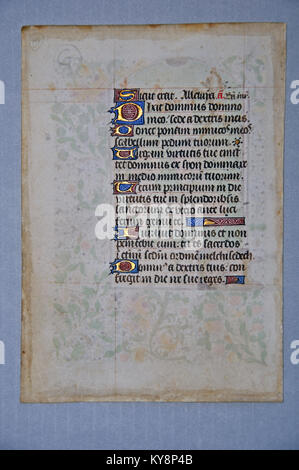 Sicut erat. Alleluya. a
Dixit dominus domino
meo: sede a dextris meis.
Donec ponam inimicos tuos:
scabellum pedum tuorum.
Virgam virtutis tue emit
tet dominus ex syon dominare
in medio inimicorum tuorum.
Tecum principium in die
virtutis tue in splendoribus
sanctorum ex utero ante luci
ferum genui te.
Iuravit dominus et non
penitebit eum: tu es sacerdos
secundum ordinem melchisedech
Dominus a dextris tuis: con
fregit in die ire sue reges.
alamy
Image ID: KY8P4B
www.alamy.com